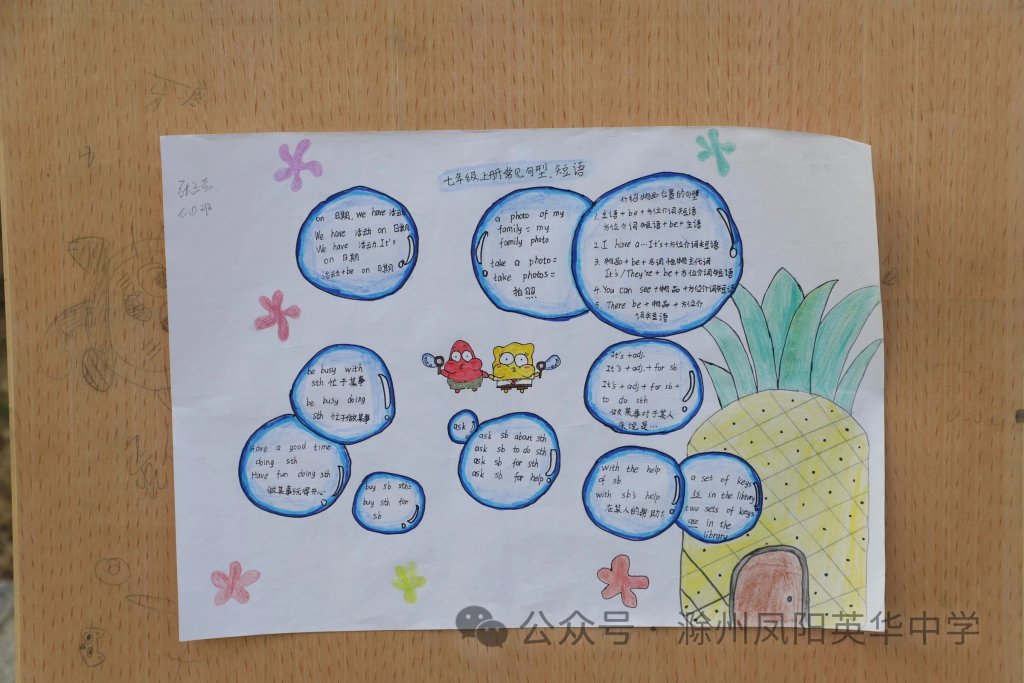 七年级上册常见句型、短语
on 日期, we have 活动
We have 活动 on 日期
We have 活动. It's
on 日期
活动+be on 日期
a photo of my
family = my
family photo
take a photo=
take photos=
拍照
介绍物品位置的句型
1. 主语+be+方位介词短语
方位介词短语+be+主语
2. I have a...It's+方位介词短语
3. 物品+be+名词性物主代词
It's/They're+be+方位介词短语
4. You can see+物品+方位介词短语
5. There be+物品+方位介
词短语
be busy with
sth 忙于某事
be busy doing
sth 忙于做某事
Have a good time
doing sth
Have fun doing sth
做某事玩得开心
buy sb sth=
buy sth for
sb
ask
ask sb about sth
ask sb to do sth
ask sb for sth
ask sb for help
It's+adj.
It's+adj.+for sb
It's+adj+for sb+
to do sth
做某事对于某人
来说是...
with the help
of sb
with sb's help
在某人的帮助下
a set of keys
is in the library
two sets of keys
are in the
library
公众号·滁州凤阳英华中学